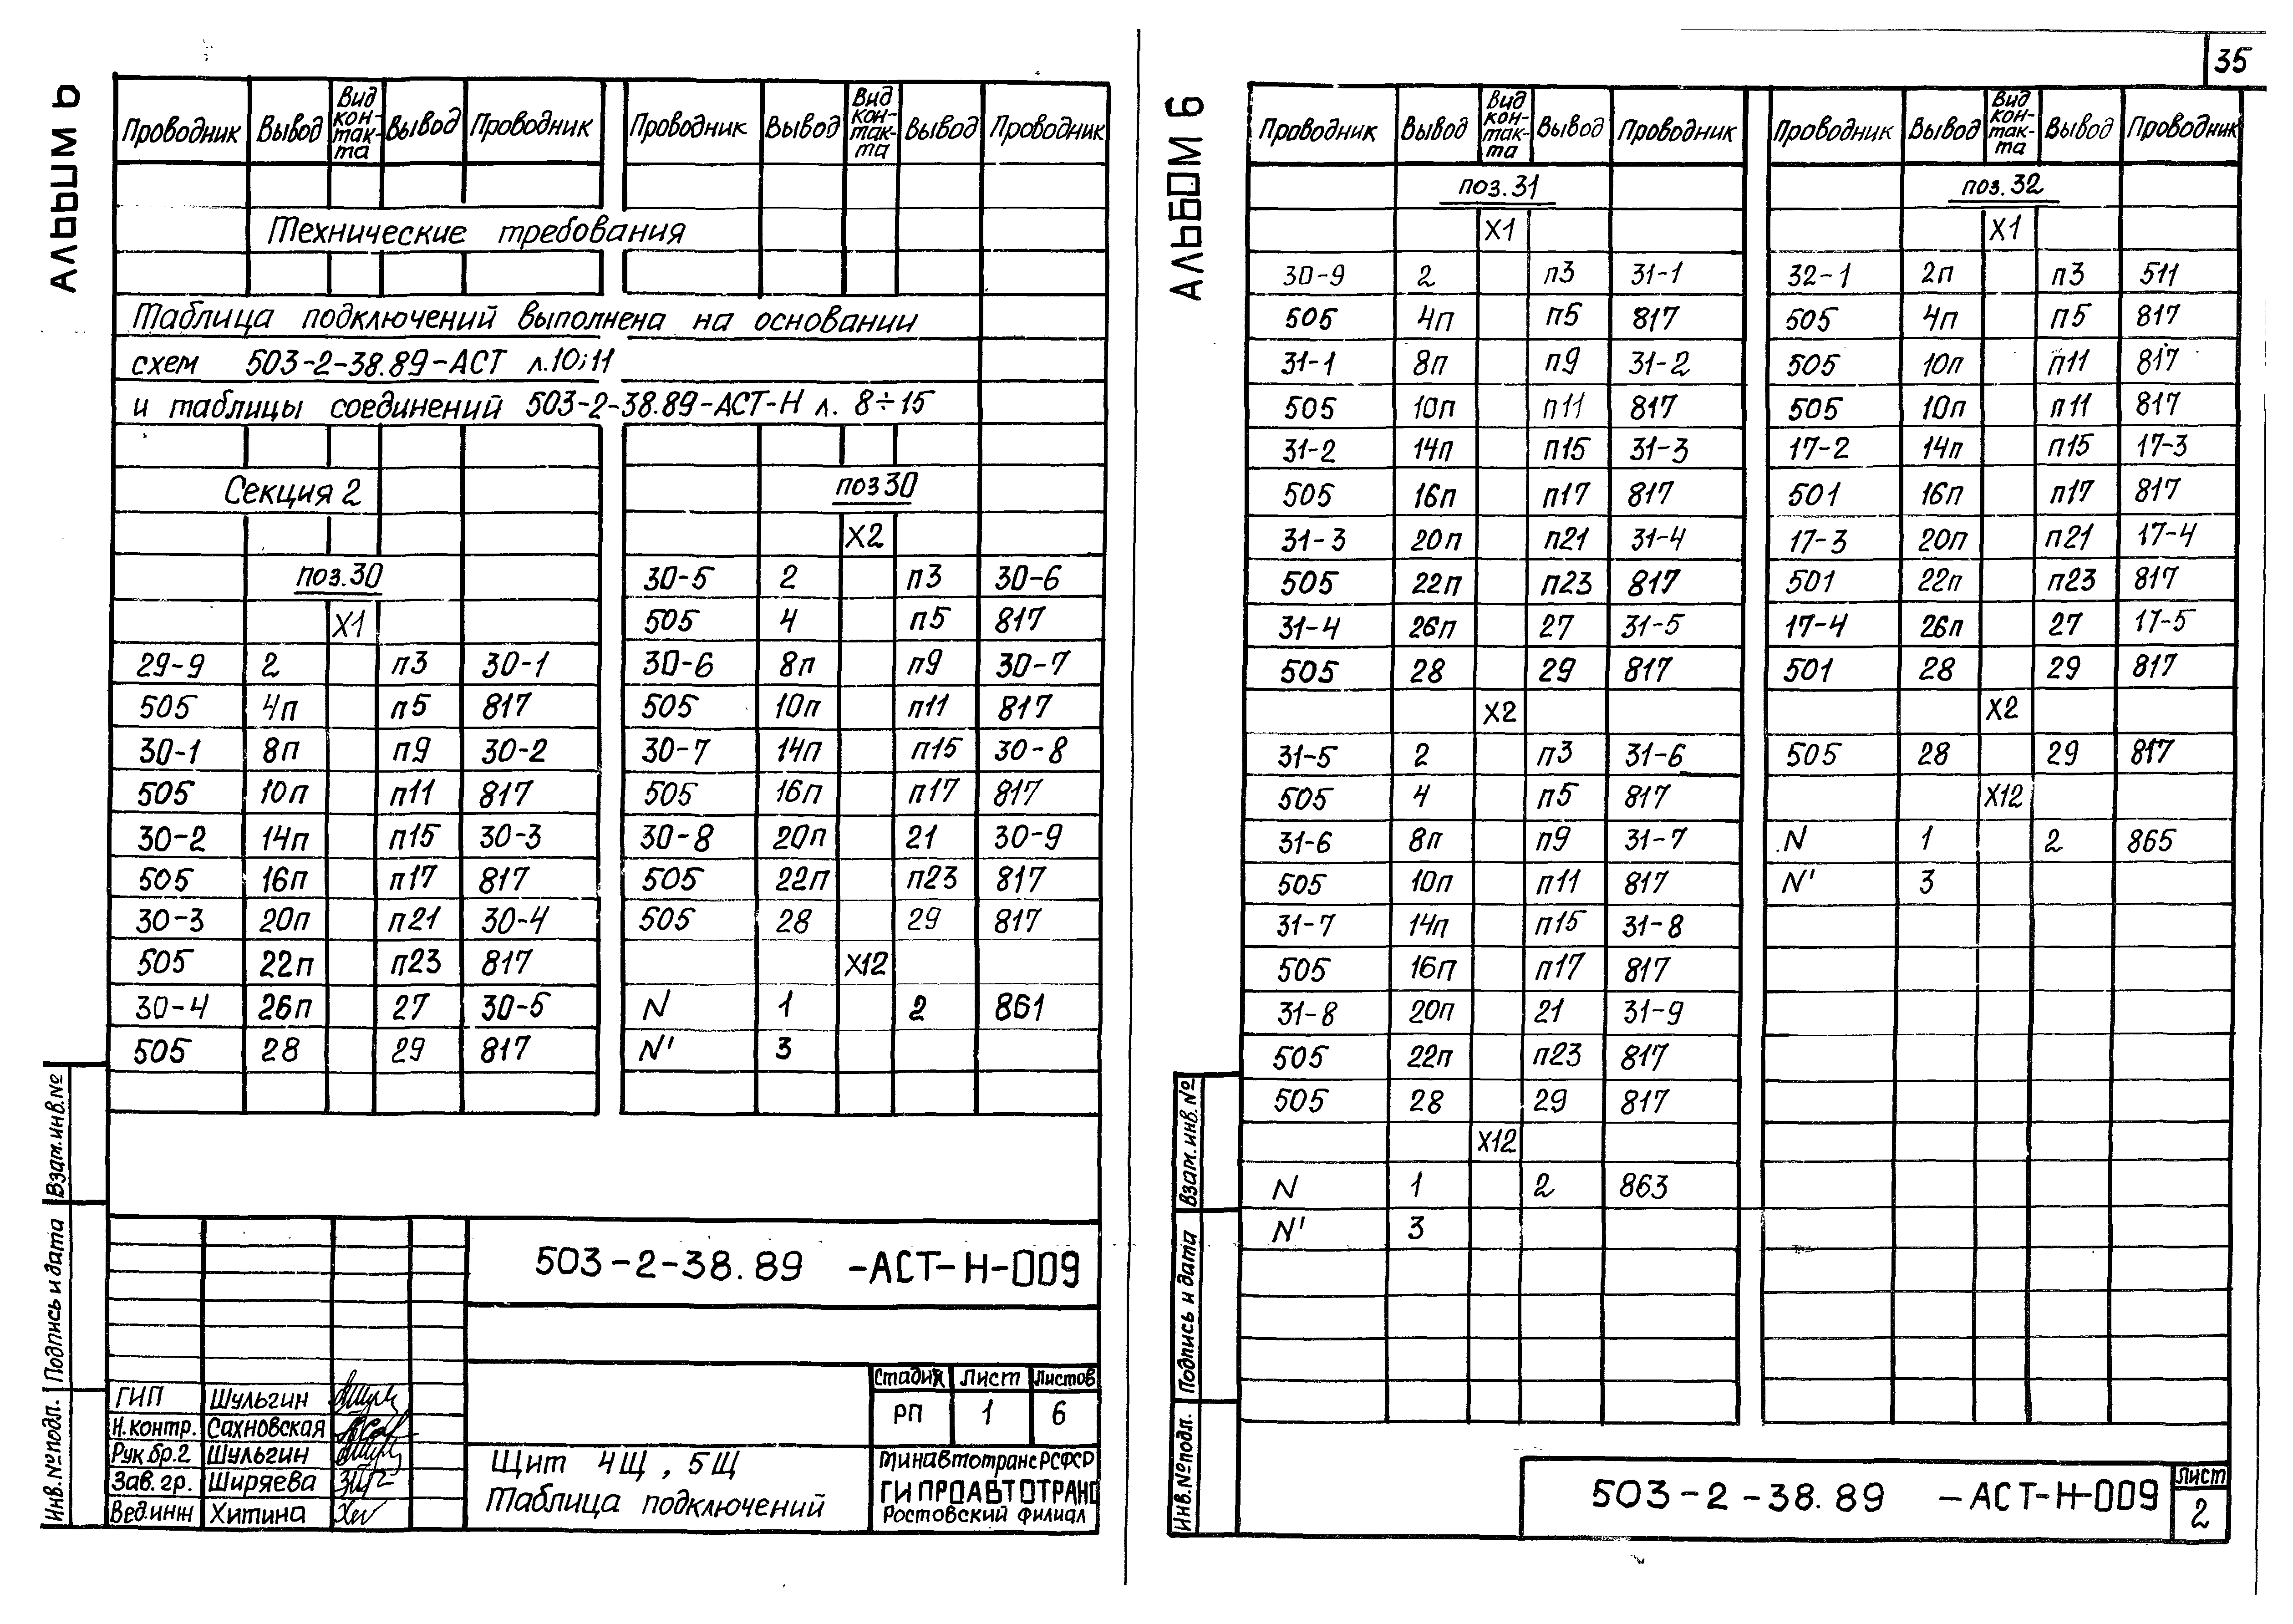 Альбом 6
Проводник Вывод Вид кон-так-та Вывод Проводник Проводник Вывод Вид кон-так-та Вывод Проводник
Технические требования
Таблица подключений выполнена на основании
схем 503-2-38.89-АСТ л.10;11
и таблицы соединений 503-2-38.89-АСТ-Н л. 8÷15
Секция 2
поз.30
X1
29-9 2 п3 30-1
505 4п п5 817
30-1 8п п9 30-2
505 10п п11 817
30-2 14п п15 30-3
505 16п п17 817
30-3 20п п21 30-4
505 22п п23 817
30-4 26п 27 30-5
505 28 29 817
поз 30
X2
30-5 2 п3 30-6
505 4 п5 817
30-6 8п п9 30-7
505 10п п11 817
30-7 14п п15 30-8
505 16п п17 817
30-8 20п 21 30-9
505 22п п23 817
505 28 29 817
X12
N 1 2 861
N' 3
Взам.инв.№
Подпись и дата
Инв.№ подл.
503-2-38.89 -АСТ-Н-009
ГИП Шульгин
Н.контр. Сахновская
Рук.бр.2 Шульгин
Зав.гр. Ширяева
Вед.инж Хитина
Щит 4Щ, 5Щ
Таблица подключений
Стадия Лист Листов
РП 1 6
МинавтотрансРСФСР
ГИПРОАВТОТРАНС
Ростовский филиал
35
АЛЬБОМ 6
Проводник Вывод Вид кон-так-та Вывод Проводник Проводник Вывод Вид кон-так-та Вывод Проводник
поз.31
X1
30-9 2 п3 31-1
505 4п п5 817
31-1 8п п9 31-2
505 10п п11 817
31-2 14п п15 31-3
505 16п п17 817
31-3 20п п21 31-4
505 22п п23 817
31-4 26п 27 31-5
505 28 29 817
X2
31-5 2 п3 31-6
505 4 п5 817
31-6 8п п9 31-7
505 10п п11 817
31-7 14п п15 31-8
505 16п п17 817
31-8 20п 21 31-9
505 22п п23 817
505 28 29 817
X12
N 1 2 863
N' 3
поз.32
X1
32-1 2п п3 511
505 4п п5 817
505 10п п11 817
505 10п п11 817
17-2 14п п15 17-3
501 16п п17 817
17-3 20п п21 17-4
501 22п п23 817
17-4 26п 27 17-5
501 28 29 817
X2
505 28 29 817
X12
N 1 2 865
N' 3
Взам.инв.№
Подпись и дата
Инв.№ подл.
503-2-38.89 -АСТ-Н-009
Лист
2